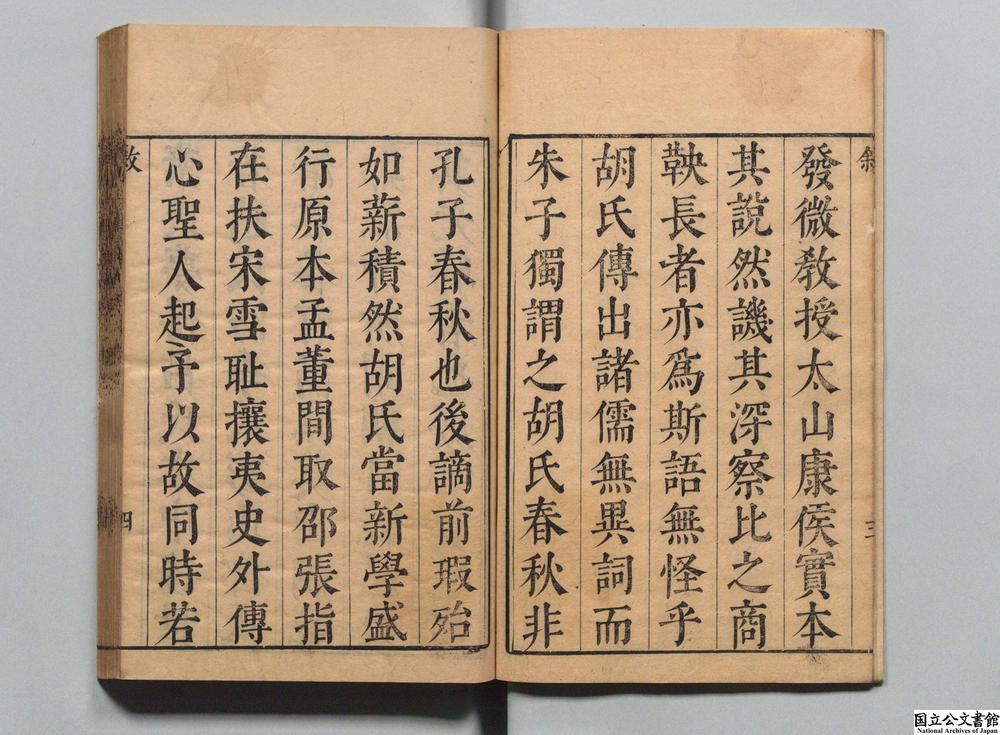 發微教授太山康侯實本
其説然譏其深察比之商
鞅長者亦爲斯語無怪乎
胡氏傳出諸儒無異詞而
朱子獨謂之胡氏春秋非
三
孔子春秋也後謫前瑕殆
如薪積然胡氏當新學盛
行原本孟董間取邵張指
在扶宋雪恥攘夷史外傳
心聖人起予以故同時若
四
国立公文書館
National Archives of Japan